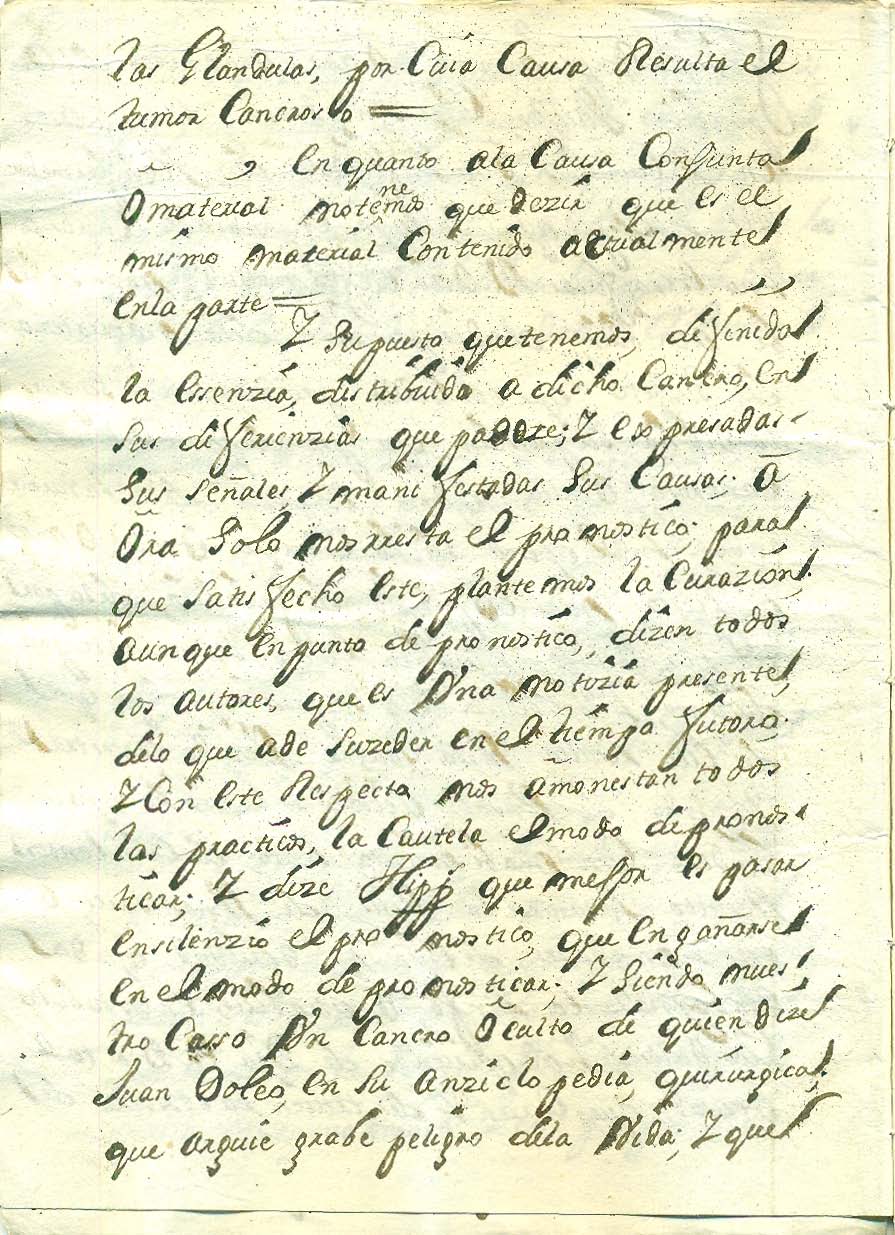 las Glandulas, por Cuia Causa Resulta el
tumor Cancroso =
En quanto ala Causa Conjunta
Ô material no tenemos que dezir que es el
mismo material Contenido actualmente
en la parte =
Y Supuesto que tenemos, difinido
la essenzia, distribuido a dicho Cancro, en
sus diferienzias que padeze; Y expresadas
sus señales, Y manifestadas sus Causas; a
Ôra Solo nos rresta el pronostico; para
que satisfecho este, plantemos la Curazion;
aunque en punto de pronostico, dizen todos
los autores, que es Vna notizia presente,
delo que ade suzeder en el tiempo futoro.
Y Con este Respecto nos amonestan todos
los practicos, la Cautela el modo de pronos
ticar; Y dize Hipp que mejor es pasar
en silenzio el pro nostico, que engañarse
en el modo de pronosticar; Y Siendo nues
tro Casso Vn Cancro Ôculto de quien dize
Juan Doleo, en su anziclopedia, quirurgica;
que arguie grabe peligro dela Vida; Y que